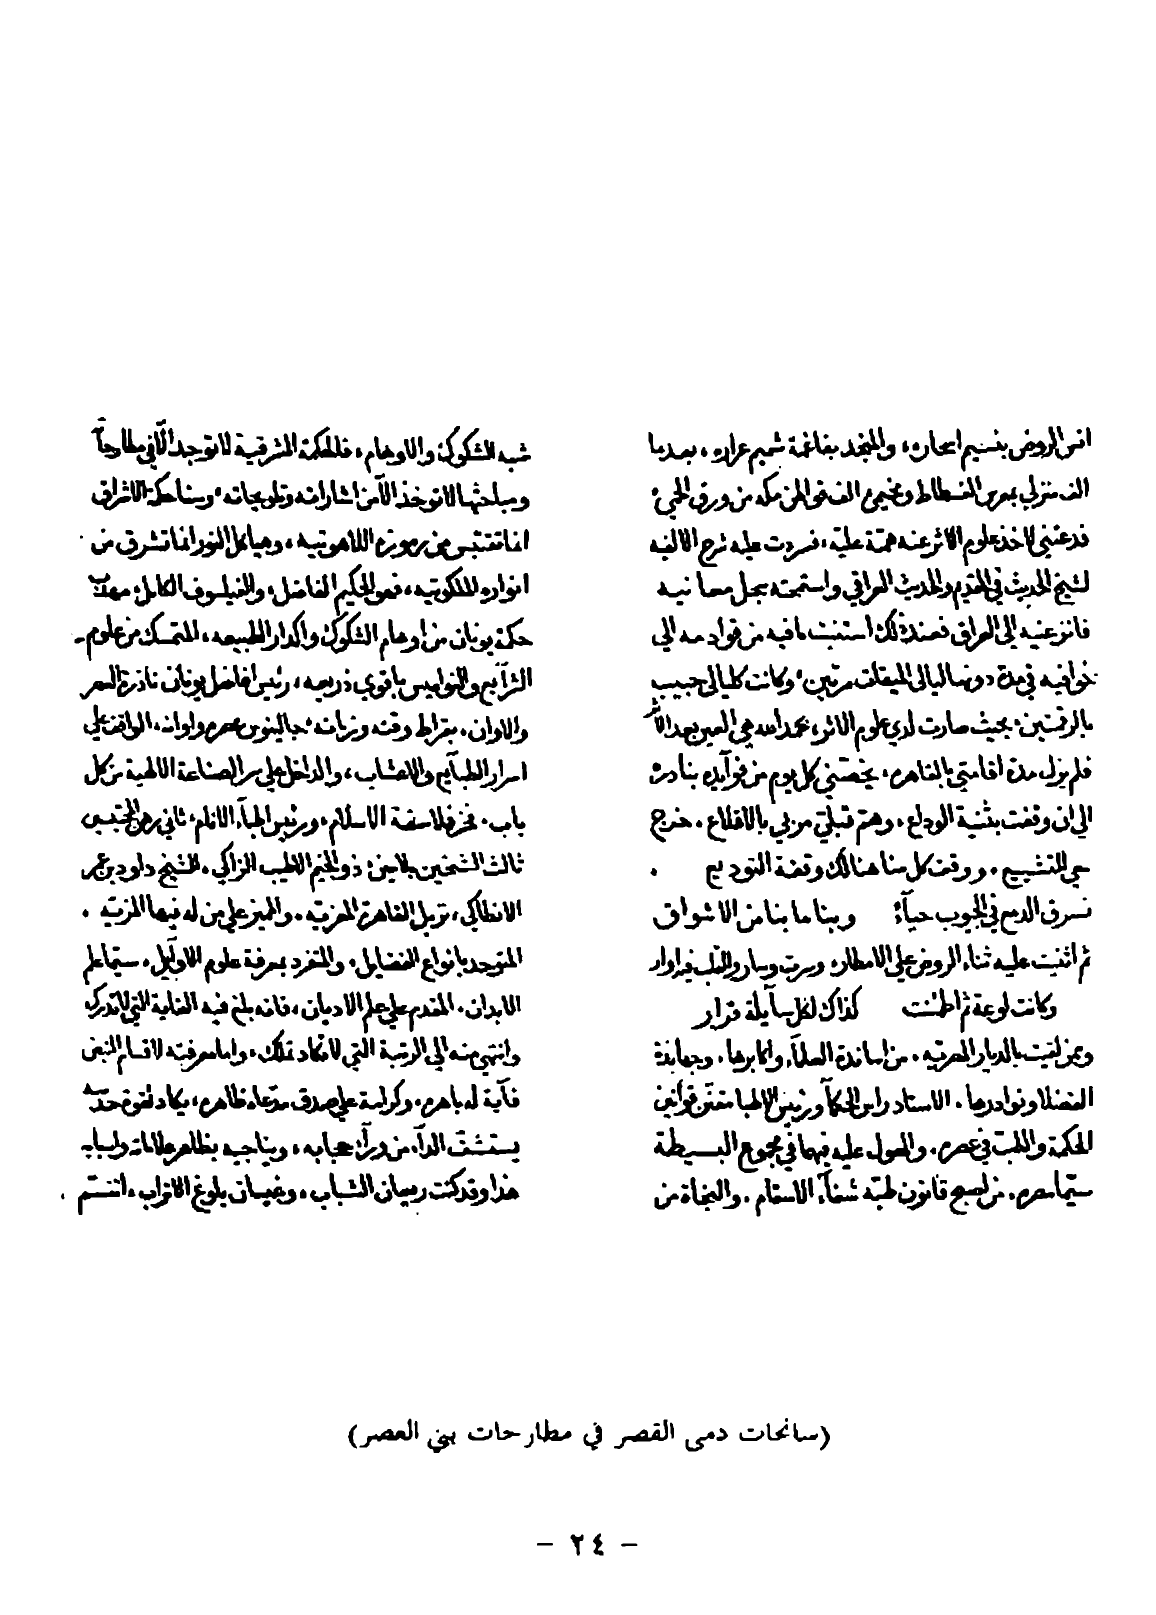 انس الروض بنسيم اسحاره، والمنجد بفاغمة شميم عراره، بعد ما
الف منزلي بمصر الفسطاط ومخيمي الف قواطن مكه من ورق الحمي
فدعتني لاخذ علوم الاثر عنه همة عليه، فسردت عليه شرح الالفيه
لشيخ الحديث في القديم والحديث العراقي واستمحته بحل معانيه
فانزعنيه الي العراقي فعند ذلك استنبت مافيه من قوادمه الي
خوافيه في مدة دونها ليالي الميقات مرتين وكانت كليالي حبيب
بالرقمتين بحيث صارت لدي علوم الاثر، بحمد الله هي العين بعد الاثر
فلم يزل مدة اقامتي بالقاهره، يخصني كل يوم من فوآيده بنادره
الي ان وقفت بثنية الوداع، وهم قبلتي من بي بالاقلاع، خرج
حي التشييع، ووقف كل منا هنالك وقفة التوديع
نسرق الدمع في الجيوب حيآءً وبنا ما بنا من الاشواق
ثم اثنيت عليه ثناء الروض علي الامطار، وسرت وسار والقلب فرار
وكانت لوعة ثم اطمئنت كذاك لكل سآيلة قرار
وممن لقيت بالديار المصريه، من اساتذة العلمآء واكابرها، وجهابذة
الفضلا ونوادرها، الاستاد راس الحكمآ ورئيس الاطبا مقنن قوانين
الحكمة والطب في عصره، والمعول عليه فيهما في مجموع البسيطة
سيما مصره، من اصبح قانون طبه شفآء الاسقام، والنجاة من
شبه الشكوك والاوهام، فالحكمة المشرقية لا توجد الّا في مطارحاته
ومباحثها لا توخذ الا من اشاراته وتلويحاته، وسنا حكمة الاشراق
انما تقتبس من رموزه اللاهوتيه، وهياكل النور انما تشرق من
انواره الملكوتيه، فهو الحكيم الفاضل، والفيلسوف الكامل، مهذب
حكمة يونان من اوهام الشكوك واكدار الطبيعه، المتمسك من علوم
الشرآيع والنواميس باقوي ذريعه، رئيس افاضل يونان نادرة العصر
والاوان، بقراط وقته وزمانه جالينوس عصره واوانه، الواقف علي
اسرار الطبآيع والاعشاب، والداخل علي سر الصناعة الالهية من كل
باب، فخر فلاسفة الاسلام، ورئيس اطبآء الانام، ثاني رهن المحبسين
ثالث الشيخين بلا مين، ذو الخيم الاطيب الزاكي، الشيخ داود بن عمر
الانطاكي، نزيل القاهرة المعزيه، والمميز علي من له فيها المزيه،
المتوحد بانواع الفضايل، والمتفرد بمعرفة علوم الاوآيل، سيما علم
الابدان، المقدم علي علم الاديان، فانه بلغ فيه الغاية التي لا تدرك
وانتهي منه الي الرتبة التي لا تكاد تملك، واما معرفته لاقسام النبض
فآية له باهره، وكرامة علي صدق مدعاه ظاهره، يكاد لقوة حدسه
يستشف الدآء من ورآء حجابه، ويناجيه بظاهر علاماته واسبابه
هذا وقد كنت ريعان الشباب، وغيسان بلوغ الاتراب، انتسم
(سانحات دمى القصر في مطارحات بني العصر)
- ٢٤ -